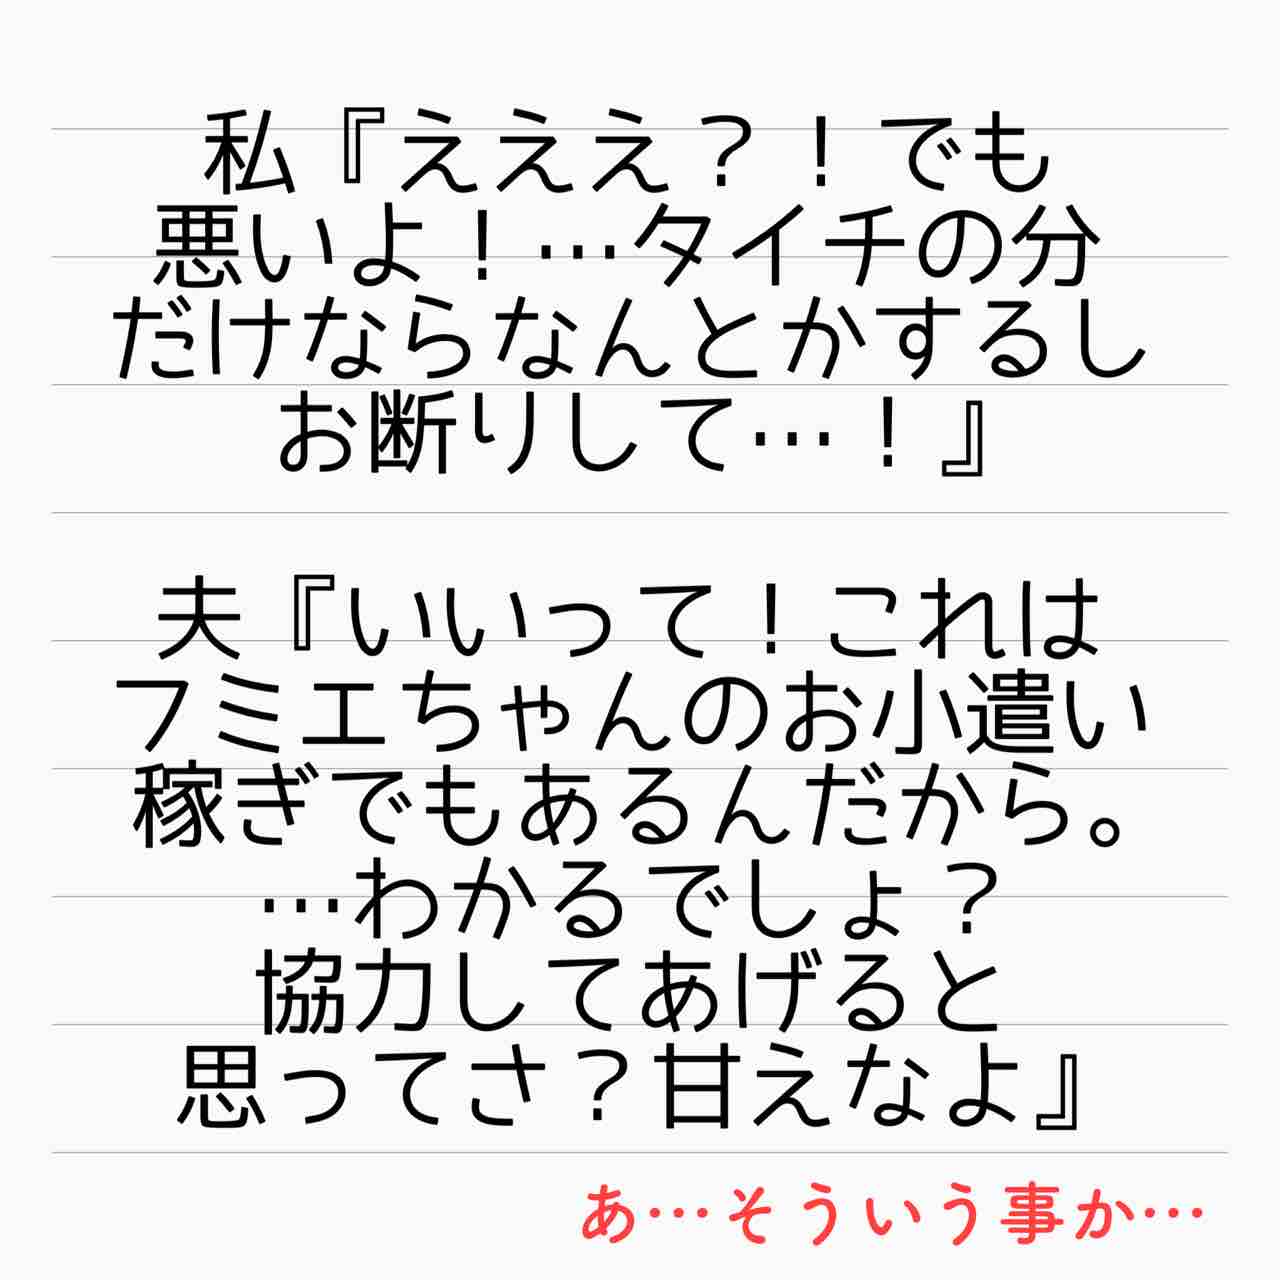 私『えええ?！でも
悪いよ！…タイチの分
だけならなんとかするし
お断りして…！』
夫『いいって！これは
フミエちゃんのお小遣い
稼ぎでもあるんだから。
…わかるでしょ？
協力してあげると
思ってさ？甘えなよ』
あ…そういう事か…